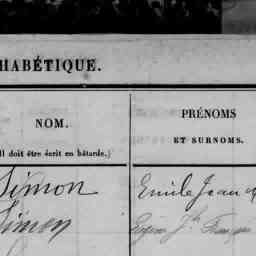 HABÉTIQUE.
NOM.
Il doit être écrit en bâtarde.)
PRÉNOMS
ET SURNOMS.
Simon Emile Jean
Simon Eugène Jh François